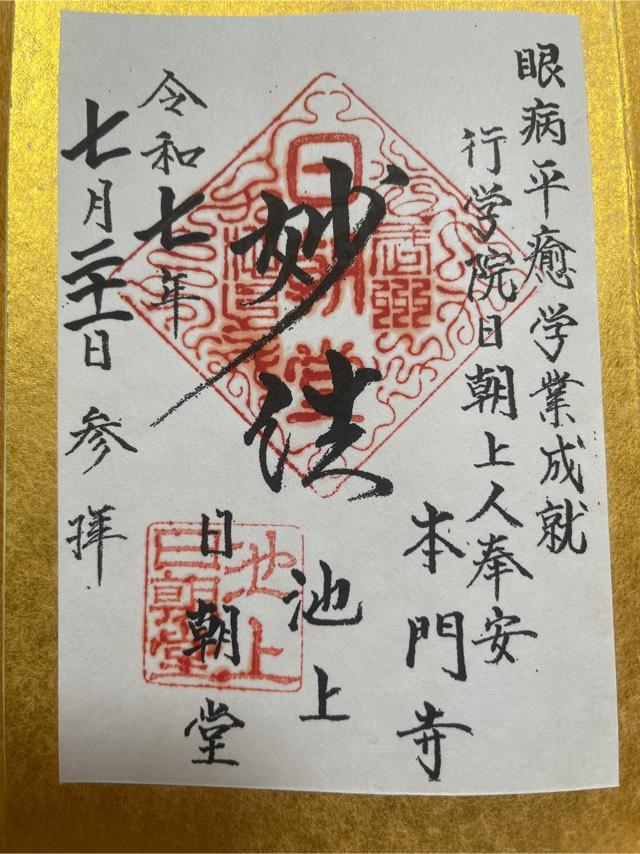 眼病平癒学業成就
行学院日朝上人奉安
本門寺
池上
妙法
日朝堂
令和七年
七月二十一日 参拝
池上
日朝堂